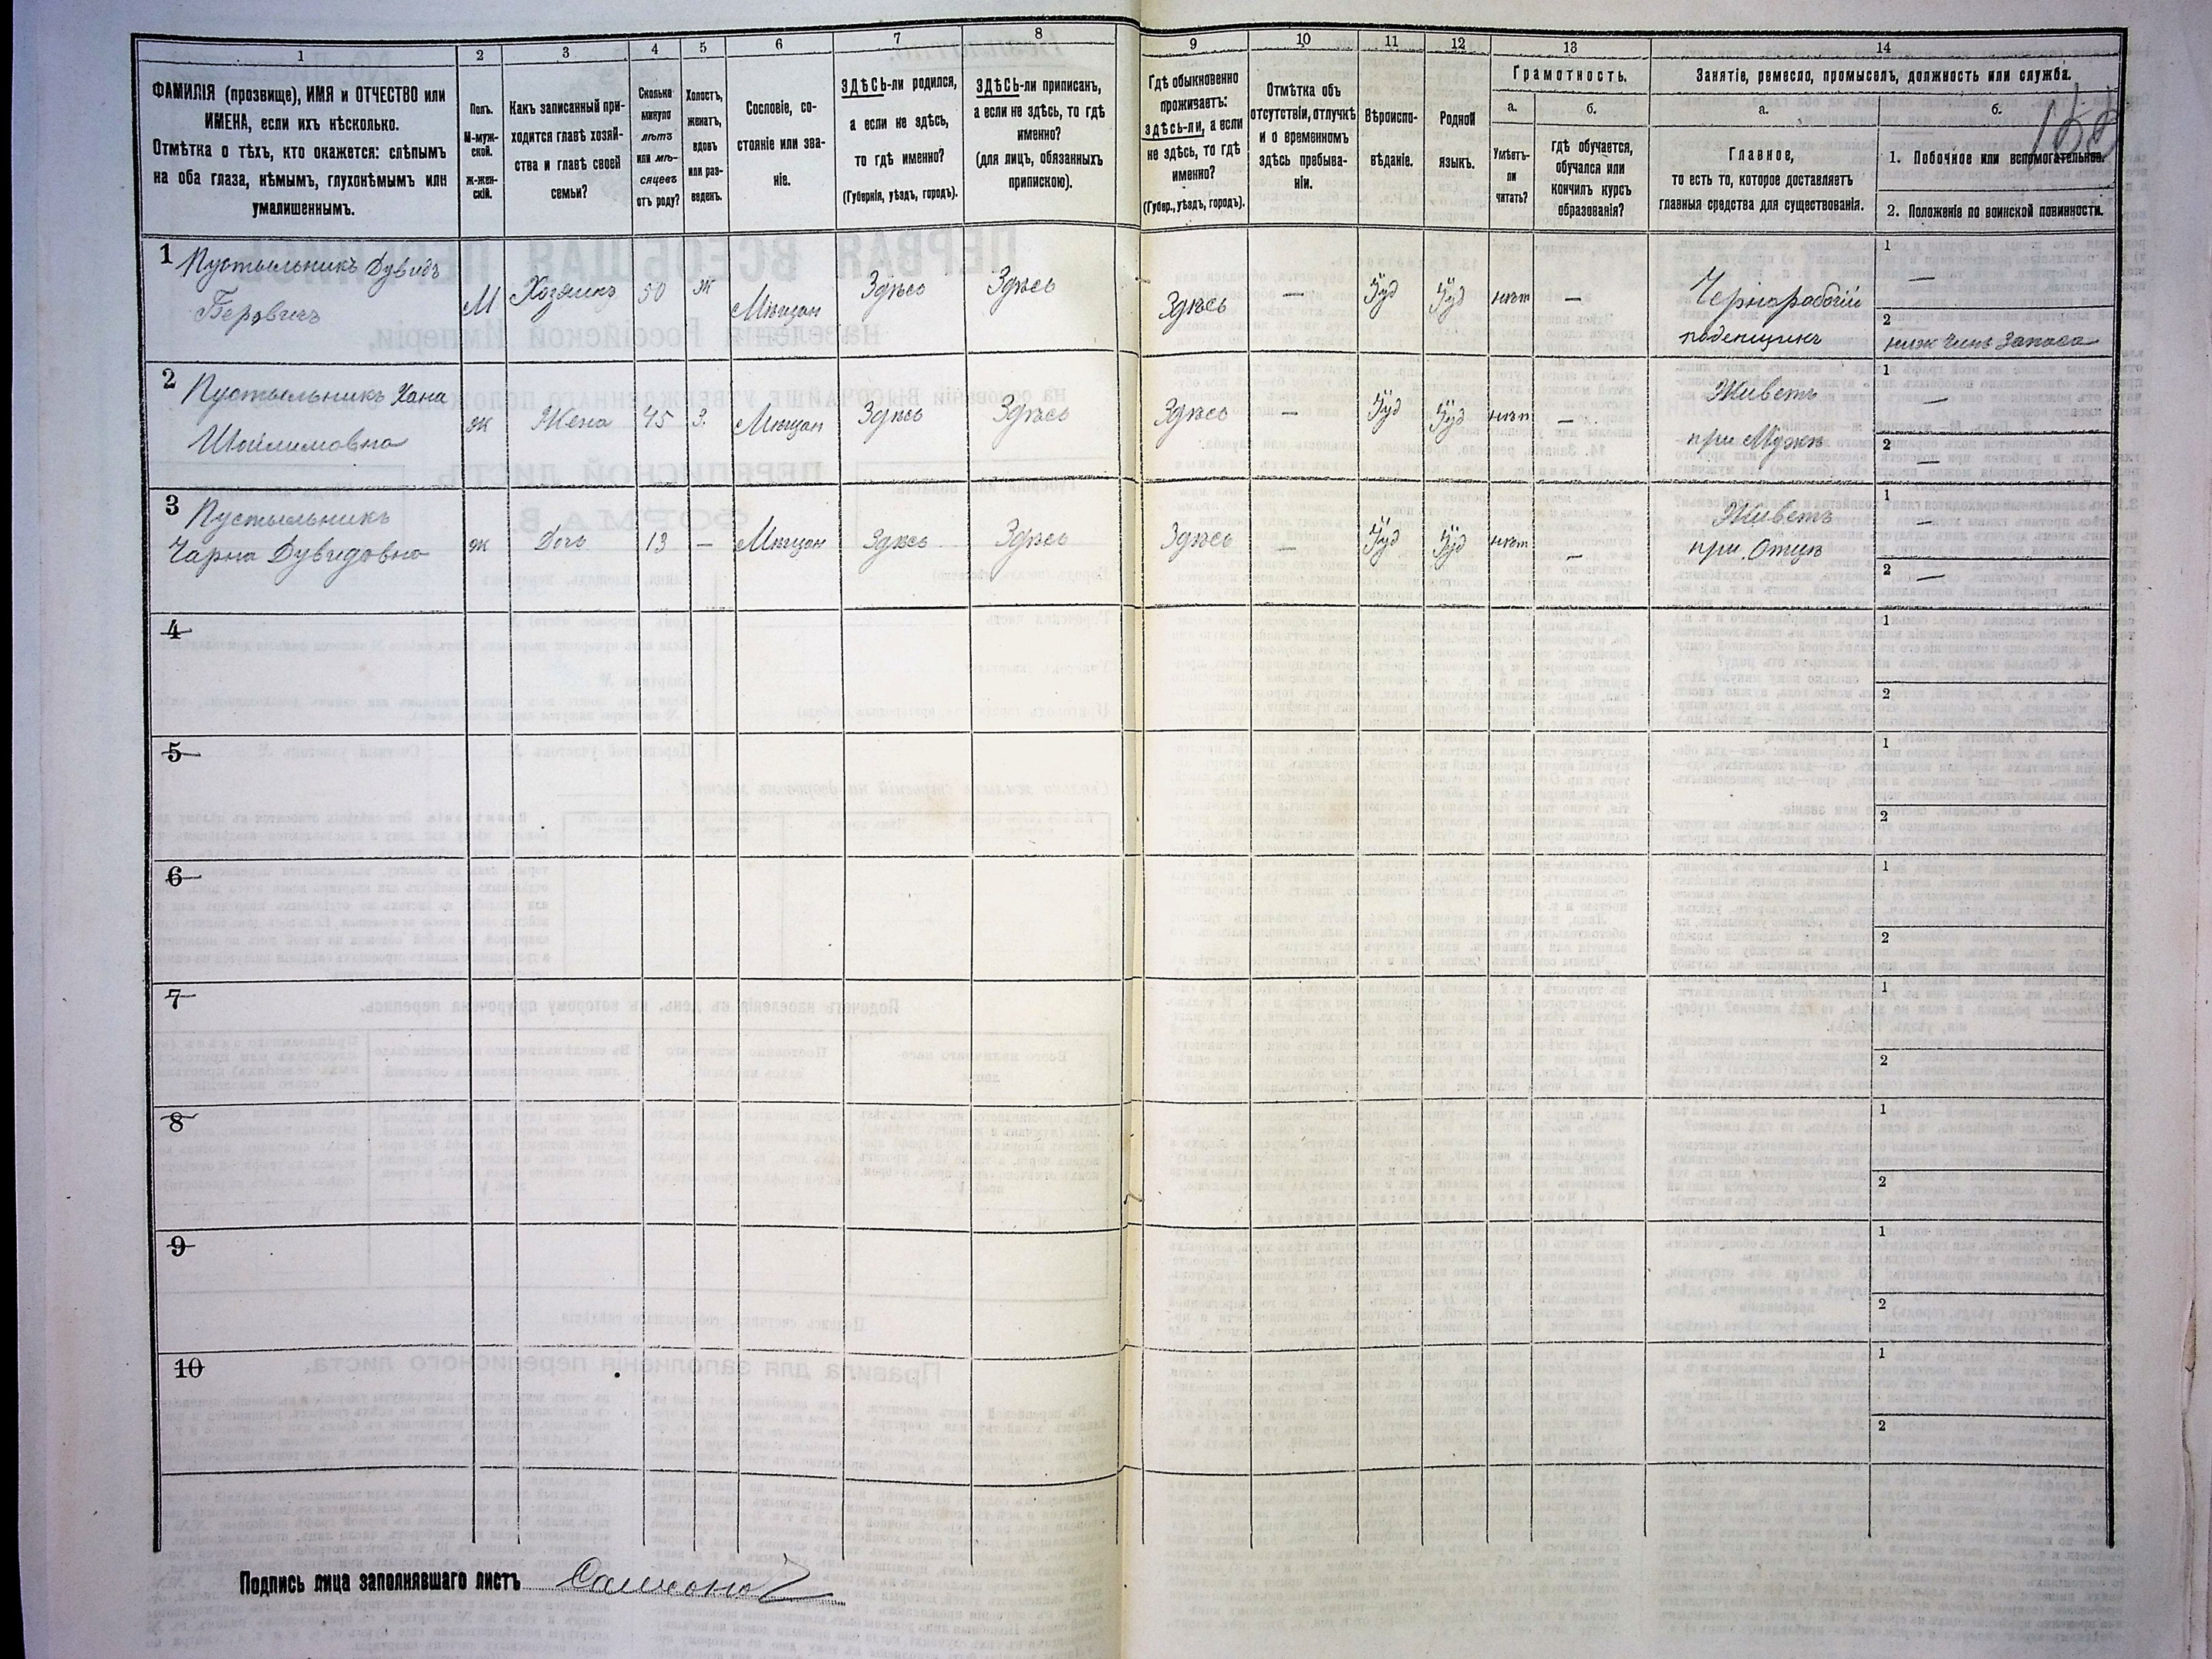 1 2 3 4 5 6 7 8 9 10 11 12 13 14
ФАМИЛІЯ (прозвище), ИМЯ и ОТЧЕСТВО или
ИМЕНА, если ихъ нѣсколько.
Отмѣтка о тѣхъ, кто окажется: слѣпымъ
на оба глаза, нѣмымъ, глухонѣмымъ или
умалишеннымъ.
Полъ.
М-муж-
ской.
ж-жен-
скій.
Какъ записанный при-
ходится главѣ хозяй-
ства и главѣ своей
семьи?
Сколько
минуло
лѣтъ
или мѣ-
сяцевъ
отъ роду?
Холостъ,
женатъ,
вдовъ
или раз-
веденъ.
Сословіе, со-
стояніе или зва-
ніе.
ЗДѢСЬ-ли родился,
а если не здѣсь,
то гдѣ именно?
(Губернія, уѣздъ, городъ).
ЗДѢСЬ-ли приписанъ,
а если не здѣсь, то гдѣ
именно?
(для лицъ, обязанныхъ
припискою).
Гдѣ обыкновенно
проживаетъ:
здѣсь-ли, а если
не здѣсь, то гдѣ
именно?
(Губер., уѣздъ, городъ).
Отмѣтка объ
отсутствіи, отлучкѣ
и о временномъ
здѣсь пребыва-
ніи.
Вѣроиспо-
вѣданіе.
Родной
языкъ.
Грамотность.
а. б.
Умѣетъ-
ли
читать?
гдѣ обучается,
обучался или
кончилъ курсъ
образованія?
Занятіе, ремесло, промыселъ, должность или служба.
а. б.
Главное,
то есть то, которое доставляетъ
главныя средства для существованія.
1. Побочное или вспомогательное.
2. Положеніе по воинской повинности.
1 Пустыльникъ Дувидъ
Беровичъ
М Хозяинъ 50 ж Мѣщан Здѣсь Здѣсь Здѣсь — Іуд Іуд нѣт —
Чернарабочій
поденщикъ
1 —
2 ниж чинъ Запаса
2 Пустыльникъ Хана
Шоилимовна
ж Жена 45 З. Мѣщан Здѣсь Здѣсь Здѣсь — Іуд Іуд нѣт —
Живетъ
при Мужѣ
1 —
2 —
3 Пустыльникъ
Чарна Дувидовна
ж Дочь 13 — Мѣщан Здѣсь Здѣсь Здѣсь — Іуд Іуд нѣт —
Живетъ
при Отцѣ
1 —
2 —
4
1
2
5
1
2
6
1
2
7
1
2
8
1
2
9
1
2
10
1
2
Подпись лица заполнявшаго листъ